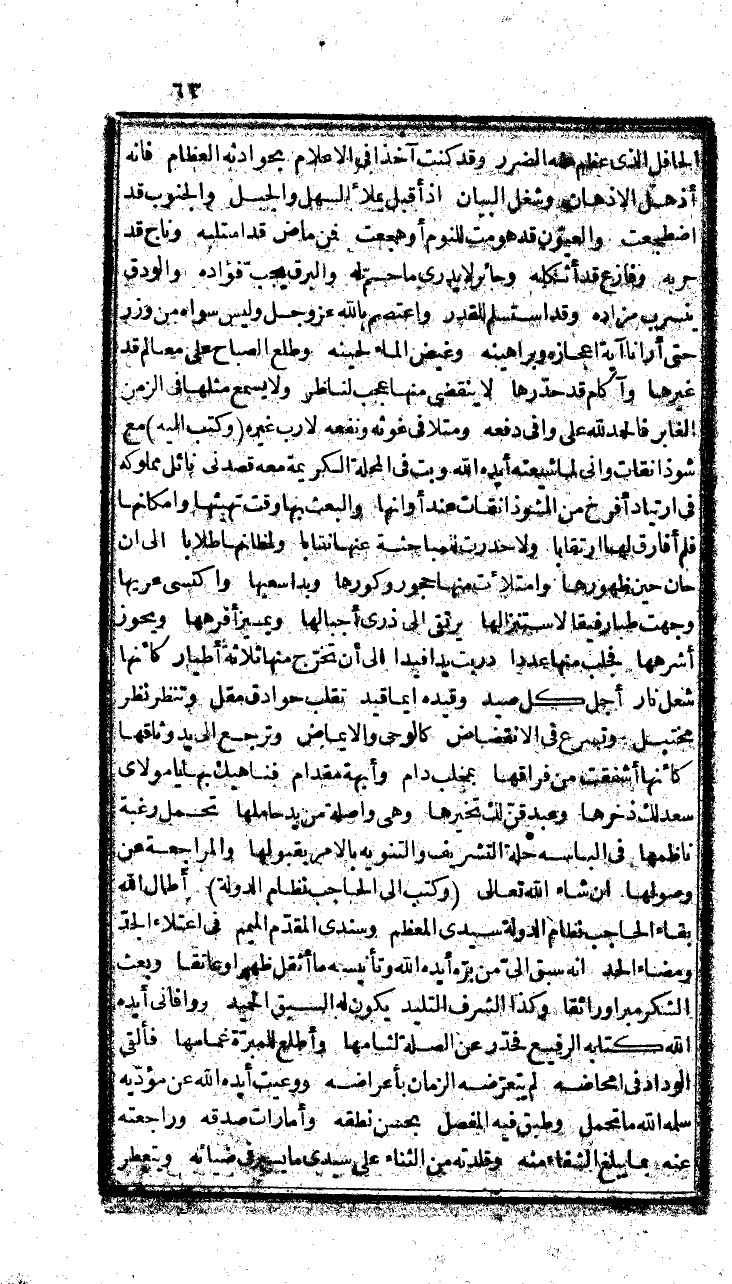 ٦٣
الحافل الذى عظم منه الضرر وقد كنت آخذا فى الاعلام بحوادثه العظام فانه
أذهل الاذهان وشغل البيان اذ أقبل بملأ السهل والجبل والجنوب قد
اضطجعت والعيون قد هومت للنوم أو هجعت فمن ماض قد استلبه وناج قد
حربه وفازع قد أثكله وحائر لا يدرى ما حم له والبرق يجب فؤاده والودق
ينسرب مزاده وقد استسلم للقدر واعتصم بالله عز وجل وليس سواه من وزر
حتى أرانا آية اعجازه وبراهينه وغيض الماء لحينه وطلع الصباح على معالم قد
غيرها وآكام قد حدرها لا ينقضى منها عجب لناظر ولا يسمع مثلها فى الزمن
الغابر فالحمد لله على وافى دفعه ومتلافى غوثه ونفعه لا رب غيره (وكتب اليه) مع
شوذانقات وانى لما شيعته أيده الله وبت فى المحلة الكريمة معه قصدنى نائل مملوكه
فى ارتياد أفرخ من الشوذانقات عند أوانها والبعث بها وقت تهيئها وامكانها
فلم أفارق لها ارتقابا ولا حدرت للمباحثة عنها نقابا ولمظانها طلابا الى ان
حان حين ظهورها وامتلأت منها حجور وكورها وبدا سعيها واكتسى عريها
وجهت طبا رفيقا لاستنزالها يرتقى الى ذرى أجبالها ويميز أفرهها ويحوز
أشرهها فجلب منها عددا دربت يدا فيدا الى أن تخرج منها ثلاثة أطيار كأنها
شعل نار أجل كل صيد وقيده ايما قيد تقلب حوادق مقل وتنظر نظر
مختبل وتسرع فى الانقضاض كالوحى والايماض وترجع الى يد وثاقها
كأنها أشفقت من فراقها بمخلب دام وأبهة مقدام فناهيك بها يا مولاى
سعد لك ذخرها وعبد قن لك تخيرها وهى واصلة من يد حاملها تحمل رغبة
ناظمها فى الباسه حلة التشريف والتنويه بالامر بقبولها والمراجعة عن
وصولها ان شاء الله تعالى (وكتب الى الحاجب نظام الدولة) أطال الله
بقاء الحاجب نظام الدولة سيدى المعظم وسندى المقدم الميمم فى اعتلاء الجد
ومضاء الحد انه سبق الى من بره أيده الله وتأنيسه ما أثقل ظهرا وعاتقا وبعث
الشكر مبرا ورائقا وكذا الشرف التليد يكون له السبق الحميد ووافانى أيده
الله كتابه الرفيع فحدر عن الصلة لثامها وأطلع للمبرة غمامها فألتى
الوداد فى امحاضه لم يتعرضه الزمان بأعراضه ووعيت أيده الله عن مؤديه
سلمه الله ما تحمل وطبق فيه المفصل بحسن نطقه وأمارات صدقه وراجعته
عنه بما يبلغ الشفاء منه وقلدته من الثناء على سيدى ما يسير فى ضيائه ويتعطر